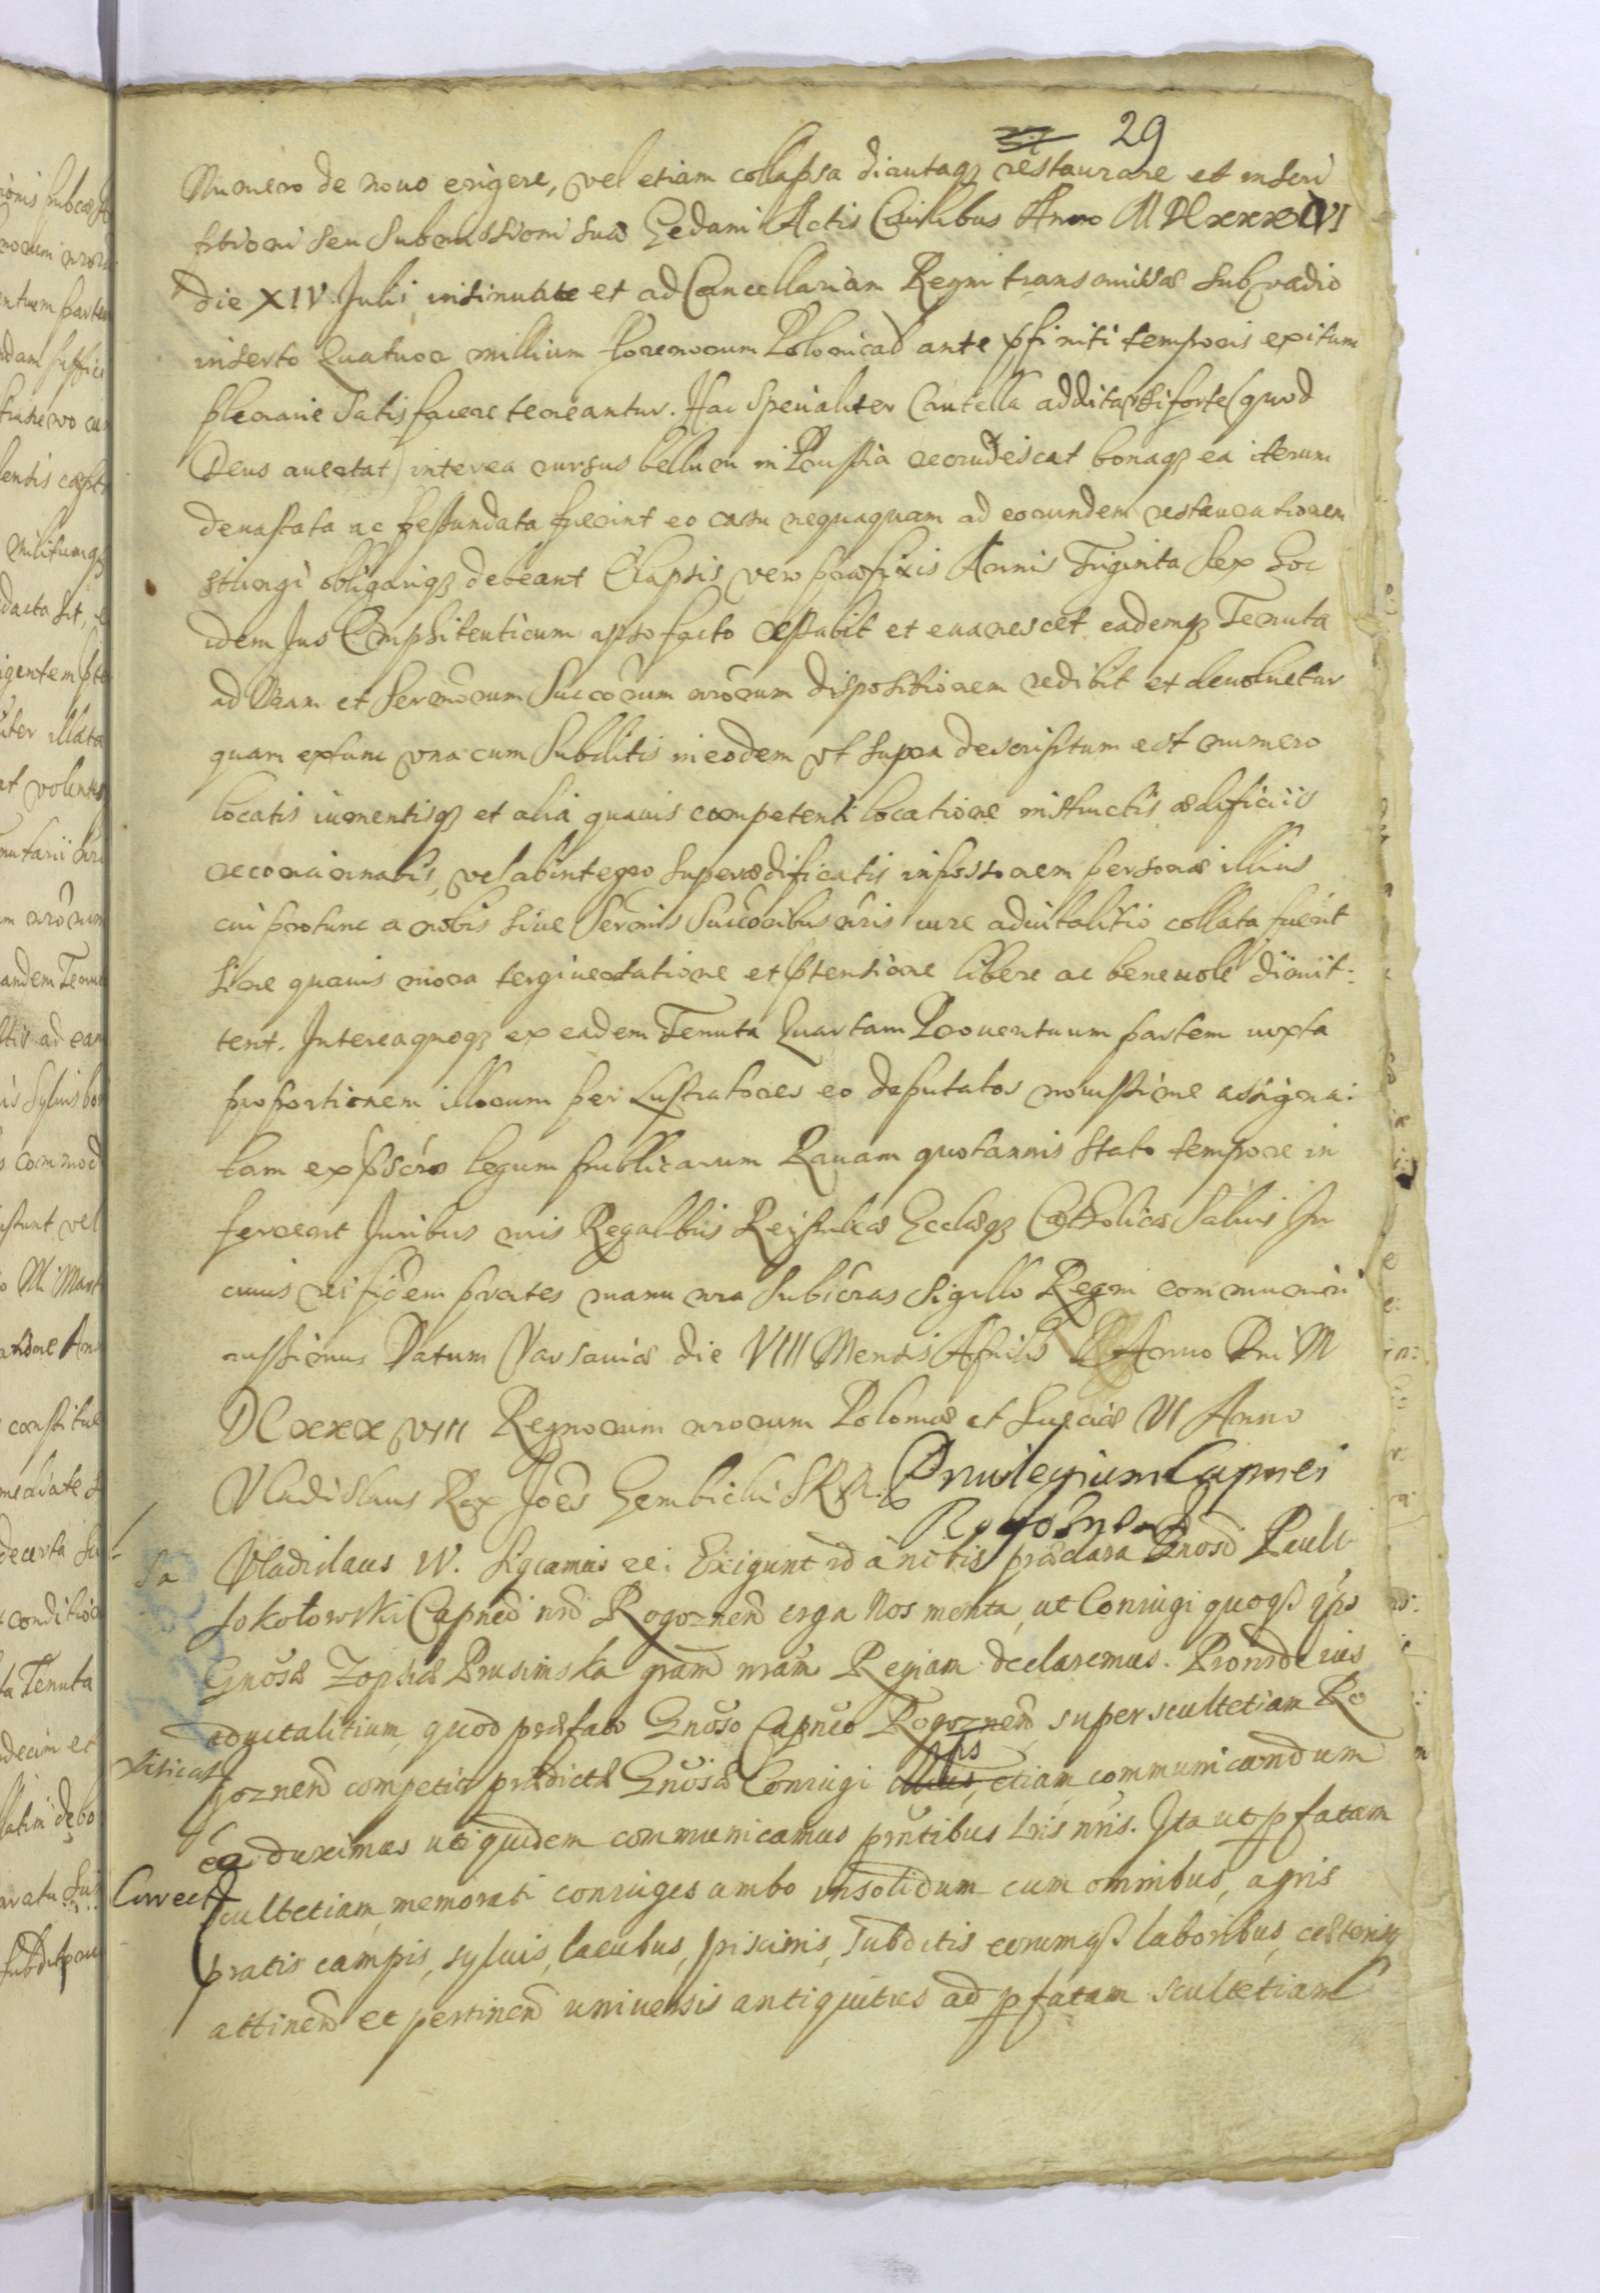 29
Numero de nouo erigere, vel etiam collapsa dirutaqz restaurare et inseri
ptioni seu submissioni suae Gedani Actis Ciuilibus Anno MDCXXXVI
die XIV Julii insinuatae et ad Cancellariam Regni transmissae sub vadio
inserto Quatuor millium florenorum Polonical ante pfiniti temporis exitum
plenarie satisfacere teneantur. Hac specialiter Cautella addita si forte (quod
Deus auertat) interea rursus bellum in Prussia recrudescat bonaqz ea iterum
deuastata ac pessundata fuerint eo casu nequaquam ad eorundem restaurationem
stringi obligariqz debeant Elapsis vero praefixis Annis Triginta Sex hoc
idem Jus Emphiteuticum ipso facto cessabit et euanescet eademqz Tenuta
ad Nram et Sermorum Succorum nrorum dispositionem redibit et deuoluetur
quam extunc vna cum Subditis in eodem vt supra descriptum est numero
locatis iumentisqz et alia quauis competenti locatione instructis aedificiis
reconcinnatis, vel ab integro superaedificatis in possionem personae illius
cui protunc a nobis siue Sermis Succoribus nris iure aduitalitio collata fuerit
sine quauis mora tergiuersatione et ptensione libere ac beneuole dimit:
tent. Intereaquoqz ex eadem Tenuta Quartam Prouentuum partem iuxta
proportionem illorum per Lustratores eo deputatos nouissime assigna:
tam ex pscro legum publicarum Rauam quotannis stato tempore in
ferent Juribus nris Regalbus Reipubcae Ecclaeqz Catholicae Saluis In
cuius rei fidem prntes manu nra subscras Sigillo Regni communiri
iussimus Datum Varsauiae die VIII Mensis Aprilis Anno Dni M
DCXXXVIII Regnorum nrorum Poloniae et Sueciae VI Anno
Vladislaus Rex Joes Gembicki SRM.
Priuilegium Capnei
Rogoznen
Vladislaus IV. Sigcamus ee: Exigunt id a nobis praeclara Gnosi Pauli
Sokołowski Capnei nri Rogoznen erga Nos merita, ut Coniugi quoqz ipso
Gnosae Zophiae Prusimska gram nram Regiam declaremus. Proinde ius
aduitalitium, quod praefato Gnoso Capneo Rogoznen super scultetiam Ro
goznen competit praedictae Gnosae Coniugi ips etiam communicandum
ea duximus uti quidem communicamus prntibus Lris nris. Ita ut pfatam
Scultetiam, memorati coniuges ambo insolidum cum omnibus, agris
pratis campis, syluis, lacubus, piscinis, subditis eorumqz laboribus, caeterisqz
attinen et pertinen uniuersis antiquitus ad pfatam scultetiam